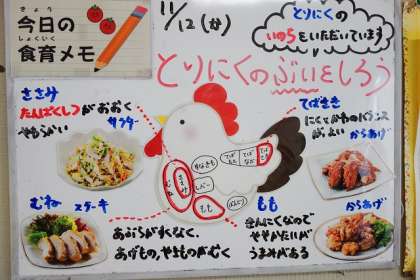 きょう
今日の
しょくいく
食育メモ
11/12(金)
とりにくの
いのちをいただいています
とりにくのぶいをしろう
ささみ
たんぱくしつがおおく
やわらかい
サラダ
てばさき
にくとかわのバランス
がよい
からあげ
むね
ささみ
もも
むね
ステーキ
あぶらがすくなく、
あげもの、やきものがむく
もも
きんにくなので
ややかたいが
うまみがある
からあげ